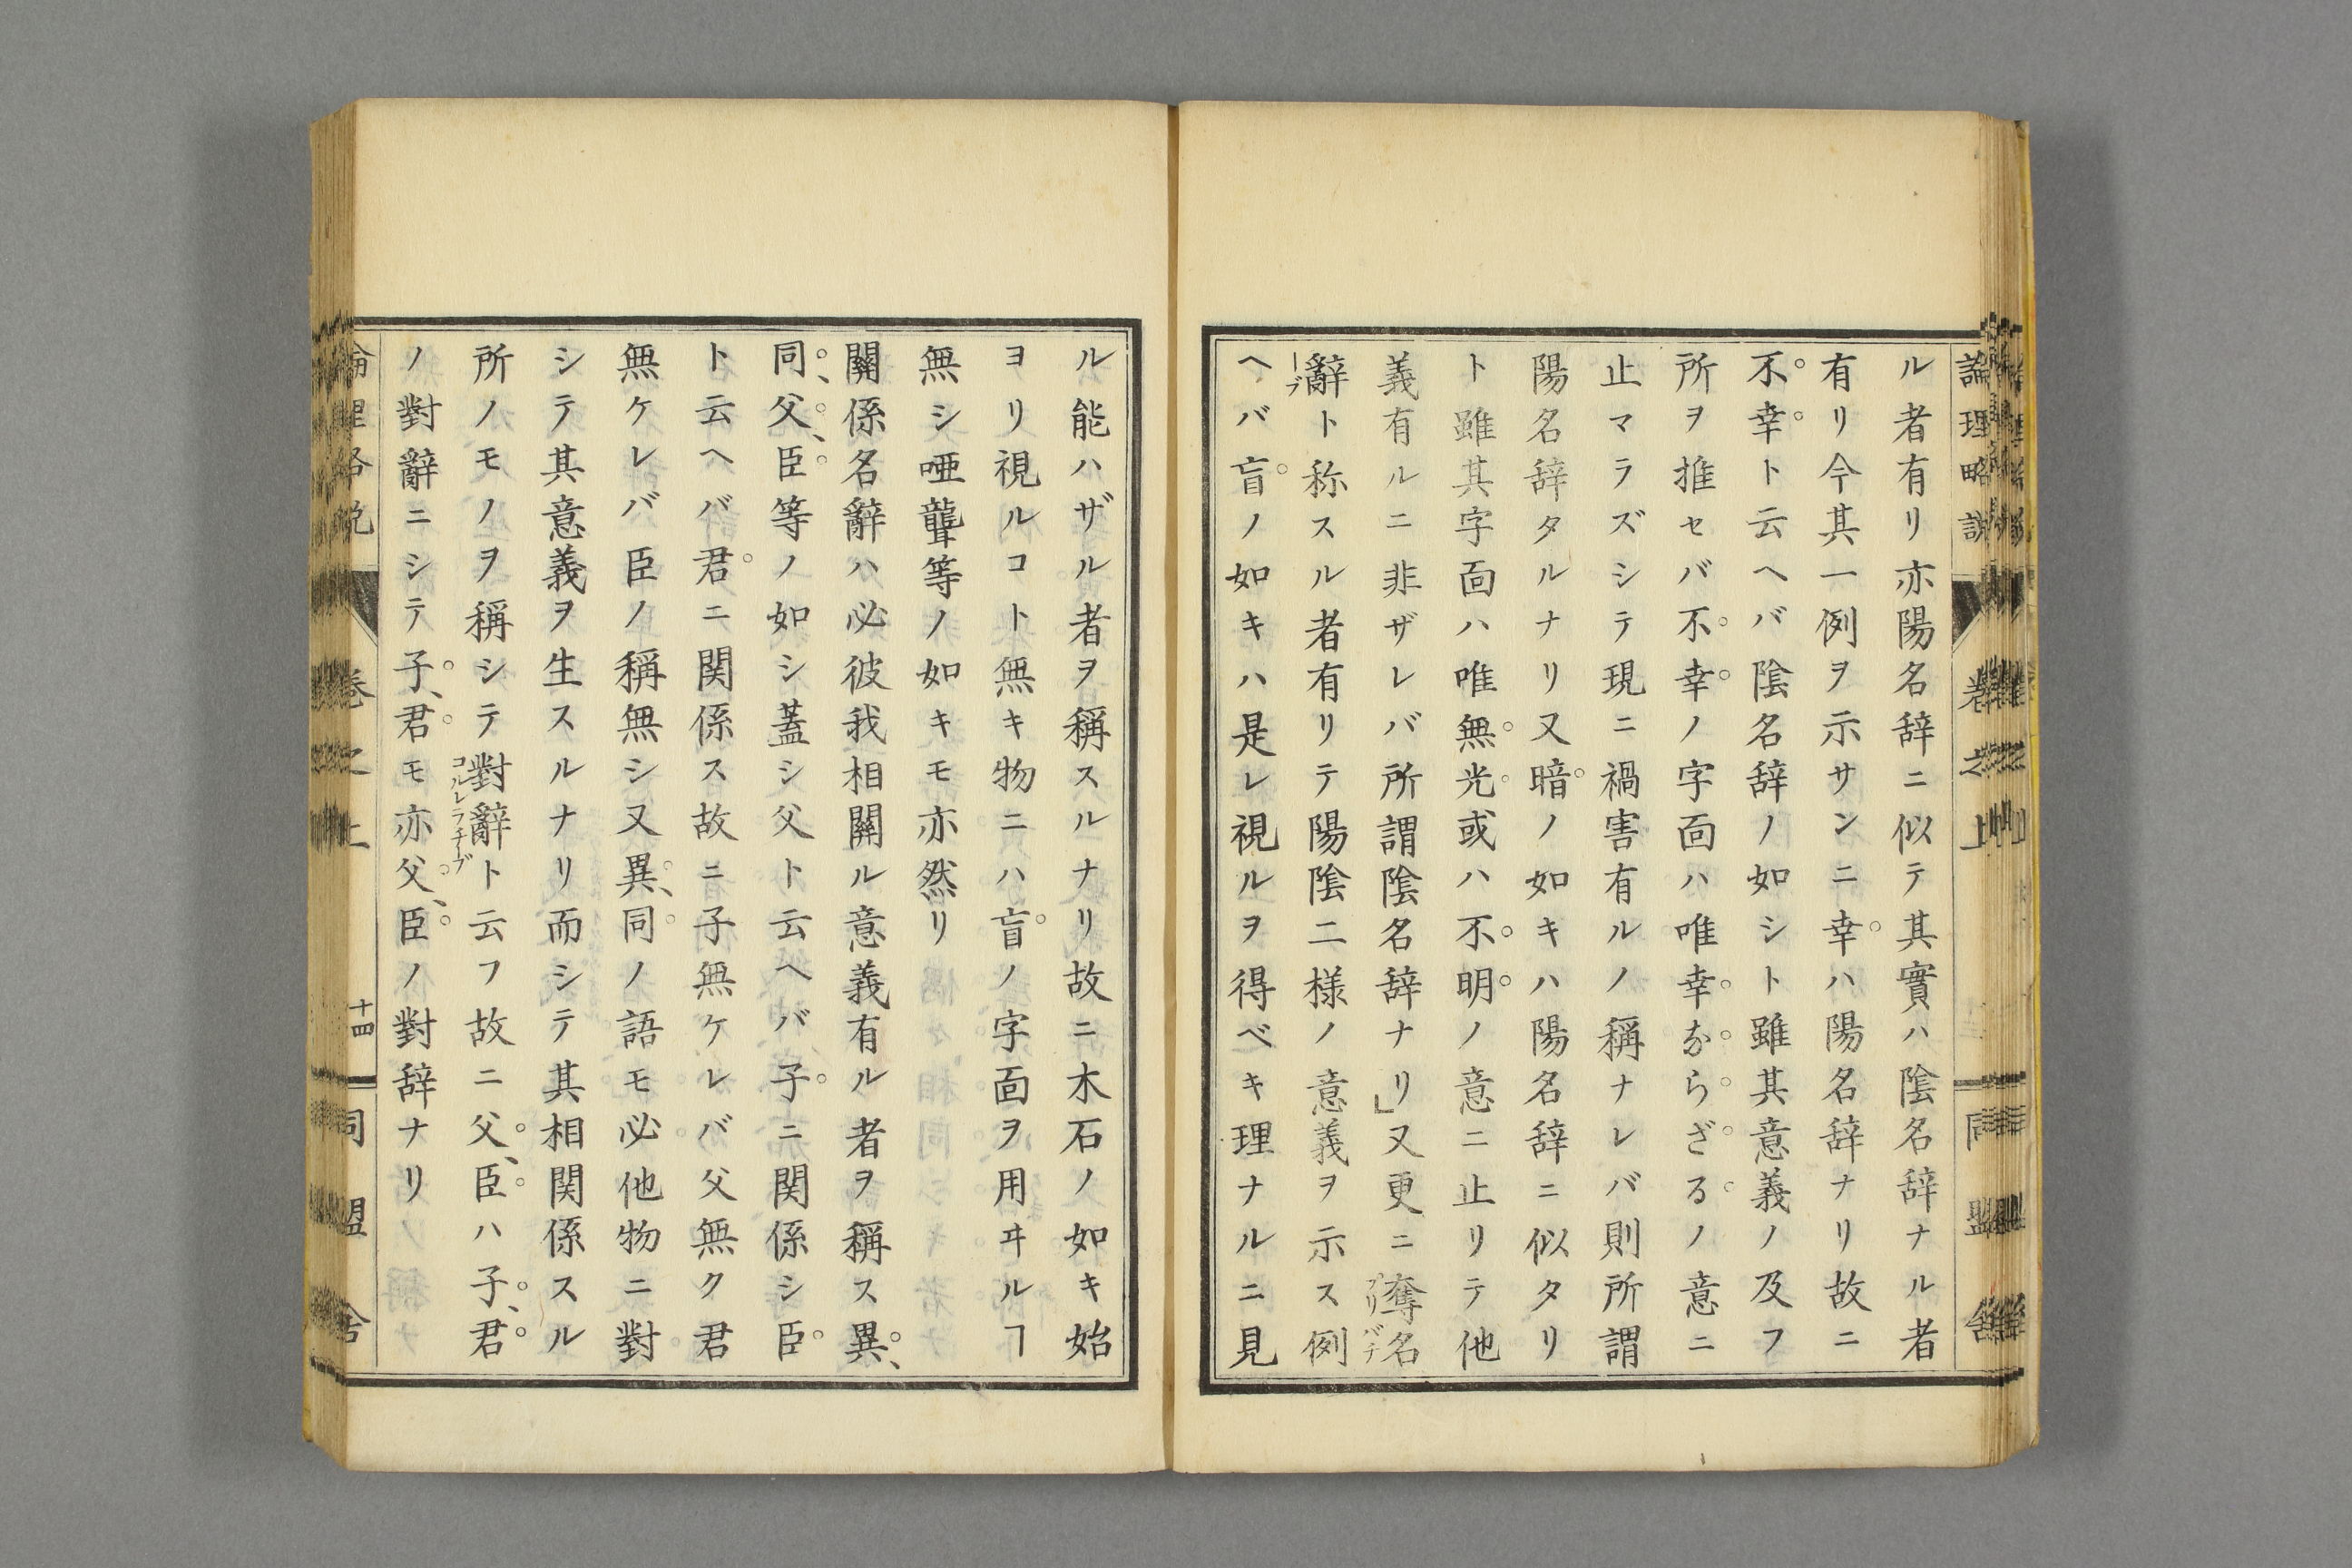 論理略説
卷之上
同盟舎
ル者有リ亦陽名辞ニ似テ其實ハ陰名辞ナル者
有リ今其一例ヲ示サンニ幸ハ陽名辞ナリ故ニ
不幸ト云ヘバ陰名辞ノ如シト雖其意義ノ及フ
所ヲ推セバ不幸ノ字面ハ唯幸ならざるノ意ニ
止マラズシテ現ニ禍害有ルノ稱ナレバ則所謂
陽名辞タルナリ又暗ノ如キハ陽名辞ニ似タリ
ト雖其字面ハ唯無光或ハ不明ノ意ニ止リテ他
義有ルニ非ザレバ所謂陰名辞ナリ」又更ニ奪名
プリバチ
辭ト称スル者有リテ陽陰二様ノ意義ヲ示ス例
ーブ
ヘバ盲ノ如キハ是レ視ルヲ得ベキ理ナルニ見
ル能ハザル者ヲ稱スルナリ故ニ木石ノ如キ始
ヨリ視ルコト無キ物ニハ盲ノ字面ヲ用ヰルヿ
無シ唖聾等ノ如キモ亦然リ
關係名辭ハ必彼我相關ル意義有ル者ヲ稱ス異、
同、父、臣等ノ如シ蓋シ父ト云ヘバ子ニ関係シ臣
ト云ヘバ君ニ関係ス故ニ子無ケレバ父無ク君
無ケレバ臣ノ稱無シ又異、同ノ語モ必他物ニ對
シテ其意義ヲ生スルナリ而シテ其相関係スル
所ノモノヲ稱シテ對辭ト云フ故ニ父、臣ハ子、君
コルレラチーブ
ノ對辭ニシテ子、君モ亦父、臣ノ對辞ナリ
論理略説
卷之上
十四
同盟舎